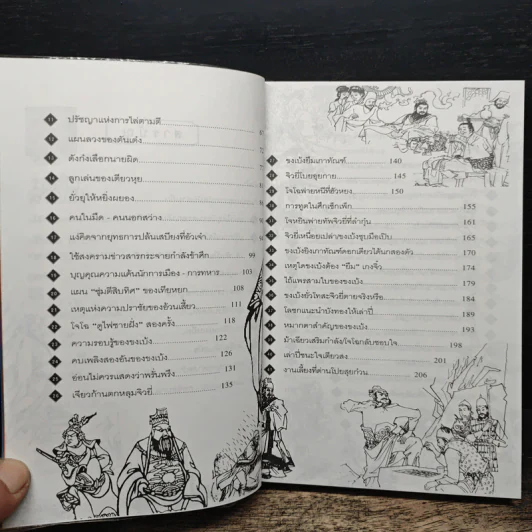 ปรัชญาแห่งการไล่ตามตี
แผนลวงของตันเต๋ง
ตังกังเลือกนายผิด
ลูกเล่นของเตียวหุย
ยั่วยุให้หยิ่งผยอง
คนในมืด - คนนอกสว่าง
แง่คิดจากยุทธการปล้นเสบียงที่อัวเจ๋า
ใช้สงครามข่าวสารกระจายกำลังข้าศึก 99
บุญคุณความแค้นนักการเมือง - การทหาร 103
แผน "ซุ่มตีสิบทิศ" ของเทียหยก 107
เหตุแห่งความปราชัยของอ้วนเสี้ยว 111
โจโฉ "ดูไฟชายฝั่ง" สองครั้ง 118
ความรอบรู้ของขงเบ้ง 122
คบเพลิงสองอันของขงเบ้ง 126
อ่อนไม่ควรแสดงว่าพรั่นพรึง 131
เจียวก้านตกหลุมจิวยี่ 135
ขงเบ้งยืมเกาทัณฑ์ 140
จิวยี่โบยอุยกาย 145
โจโฉพ่ายหนีที่ฮัวหยง 150
การทูตในศึกเซ็กเพ็ก 155
โจหยินพ่ายทัพจิวยี่ที่ลำกุ๋น 161
จิวยี่เหนื่อยเปล่าขงเบ้งชุบมือเปิบ 165
ขงเบ้งยิงเกาทัณฑ์ดอกเดียวได้นกสองตัว 170
เหตุใดขงเบ้งต้อง "ยืม" เกงจิ๋ว 174
ไถ้แพรสามใบของขงเบ้ง 179
ขงเบ้งยั่วโทสะจิวยี่ตายจริงหรือ 184
โลซกแนะนำบังทองให้เล่าปี่ 189
หมากตาสำคัญของขงเบ้ง 193
ม้าเจียวเสริมกำลังโจโฉกลับชอบใจ 198
เล่าปี่ชนะใจเตียวสง 201
งานเลี้ยงที่ด่านโปยสุยก๋วน 206